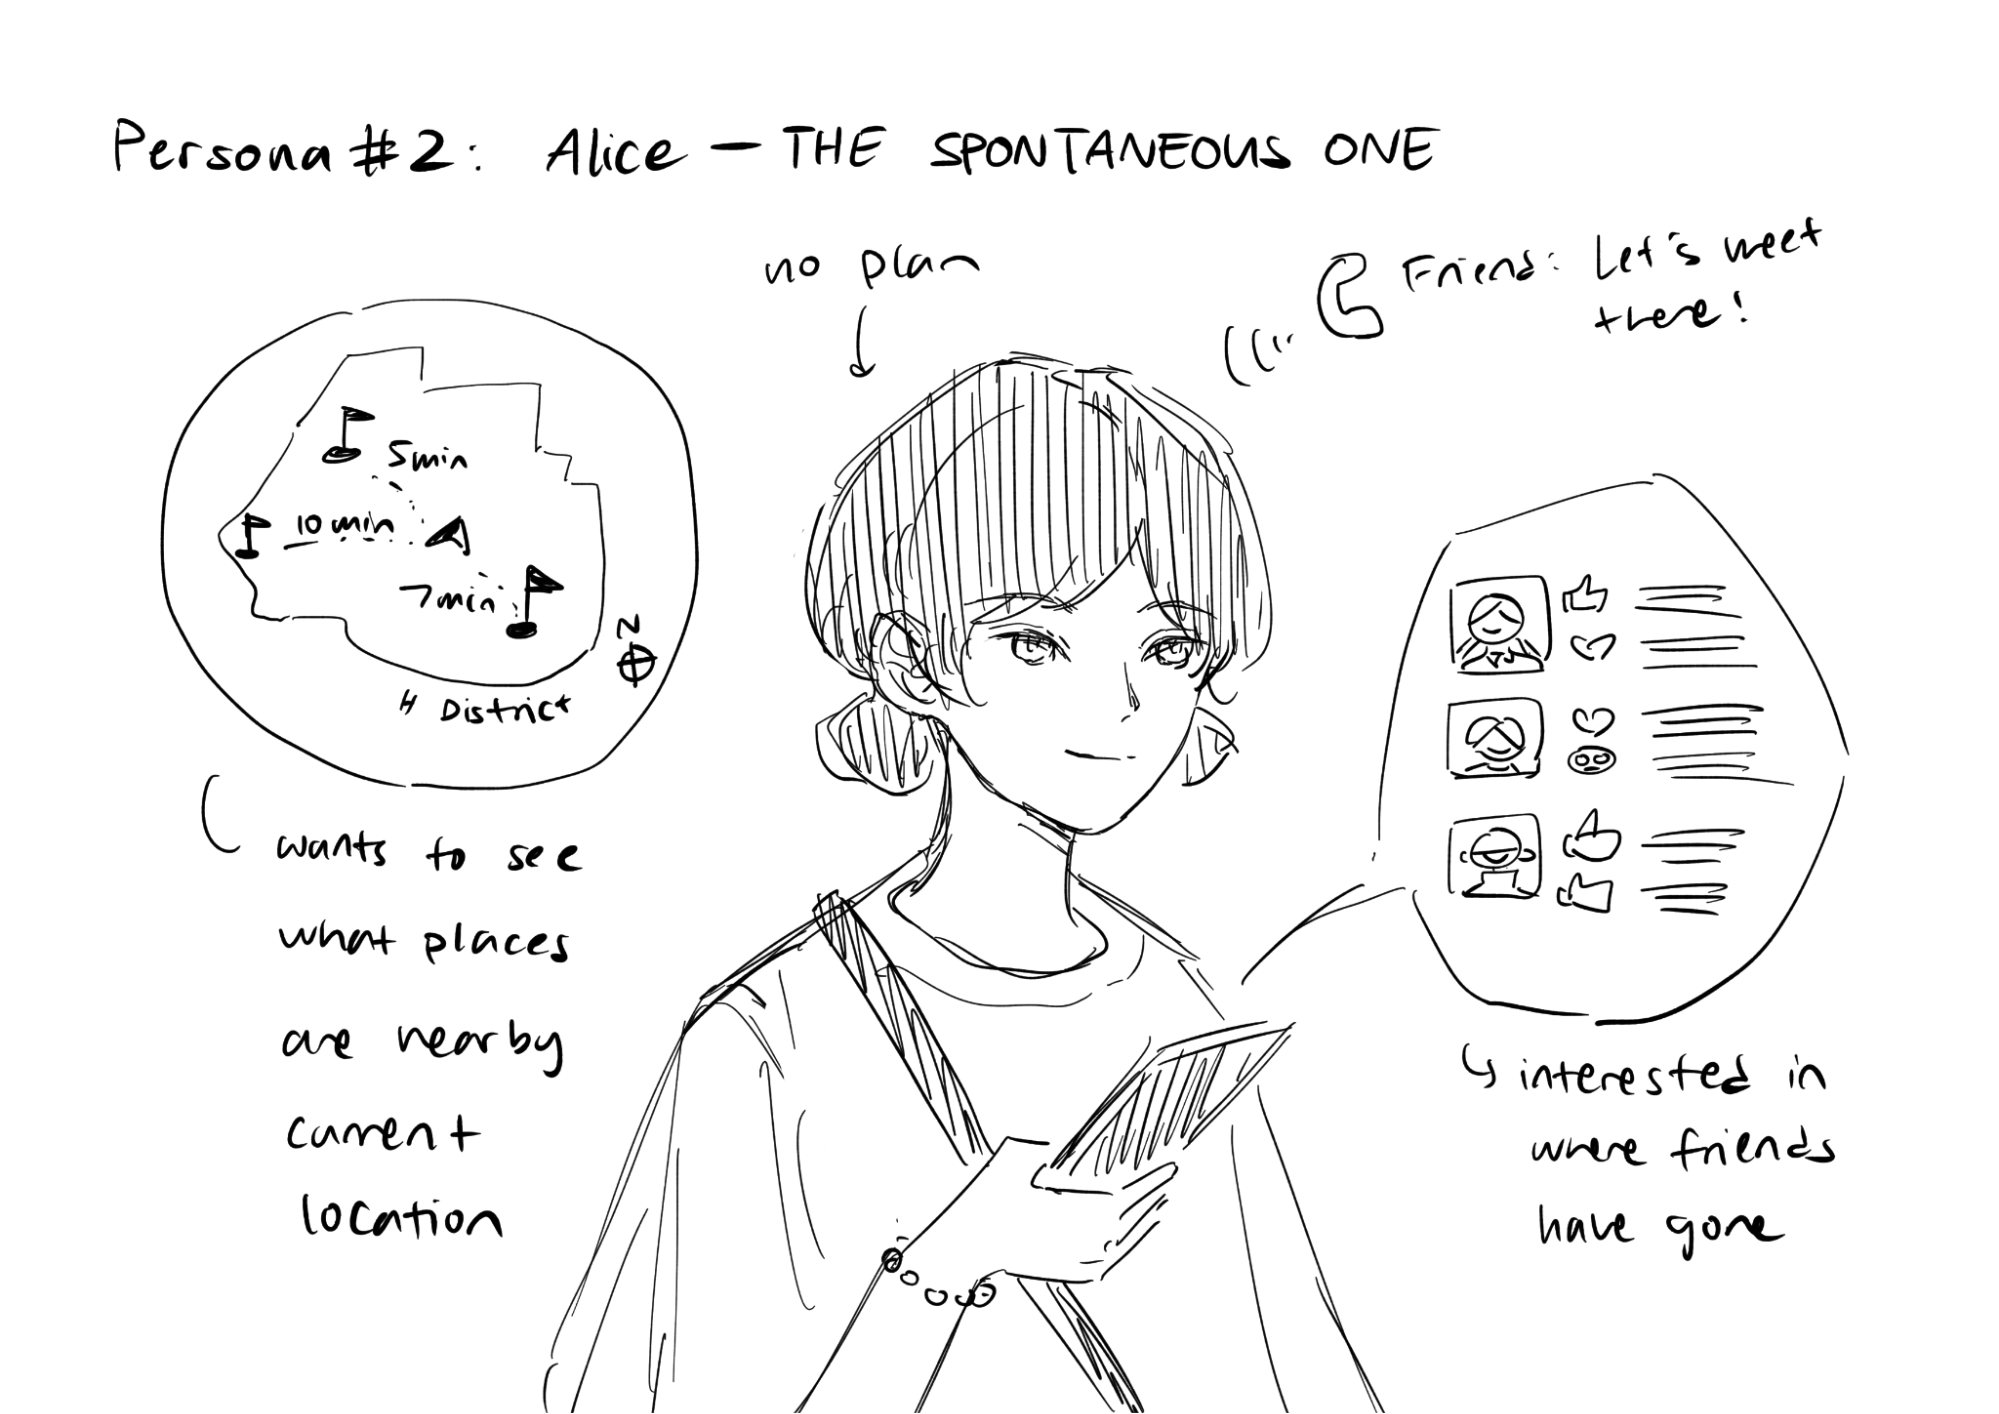 Persona #2: Alice — THE SPONTANEOUS ONE
no plan
Friend: Let's meet
there!
5min
10min
7min
N
H District
wants to see
what places
are nearby
current
location
interested in
where friends
have gone